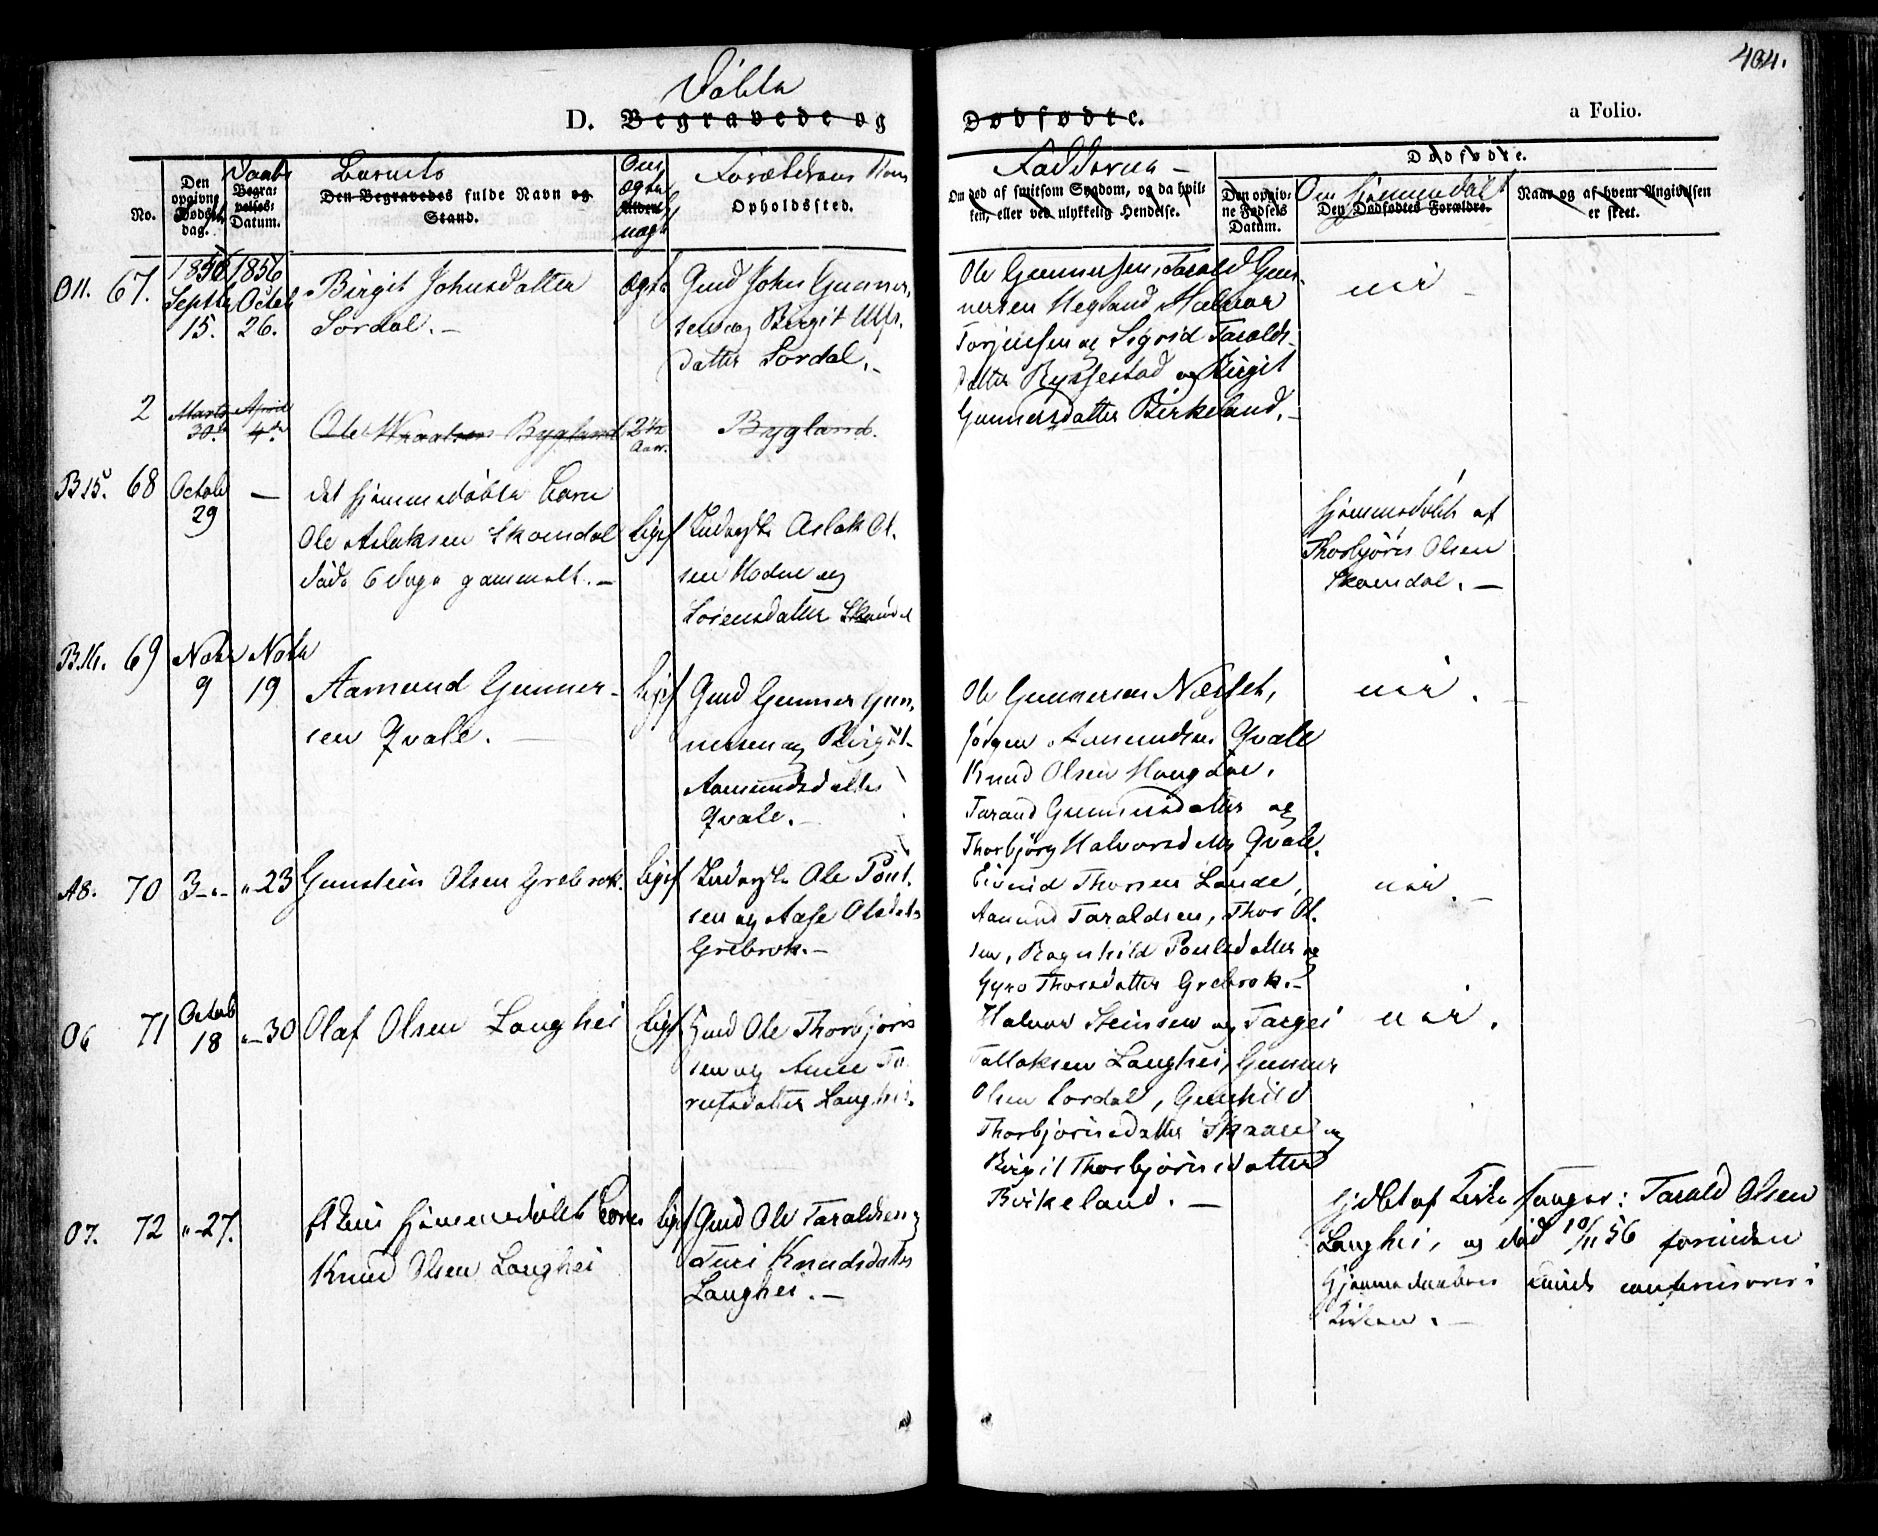 404.
Døbte
D. Begravede og Dødfødte.
a Folio.
No.
Den opgivne Døds- dag.
Daabs
Begra- velses- Datum.
Barnets
Den Begravedes fulde Navn og Stand.
Om ægte
Alder
uægte
Forældrenes Navn
Opholdssted.
Fadderne
Om død af smitsom Sygdom, og da hvil-
ken, eller ved ulykkelig Hendelse.
Dødfødte.
Den opgiv- ne Fødsels Datum.
Om hjemmedøbt
Den Dødfødtes Forældre.
Navn og af hvem Angivelsen er skeet.
O11. 67.
1856 Septbr 15.
1856 Octob 26.
Birgit Johnsdatter
Sordal.
ægte
Gmd John Gunner-
sen og Birgit Ulfs-
datter Sordal.
Ole Gunnersen, Tarald Gun-
nersen Hegland Halvor
Torjussen og Sigrid Taralds-
datter Rysstad og Birgit
Gunnersdatter Birkeland.
nei
2
Marts 30te
April 4de
Ole Knudsen Bygland
2 1/2 Aar.
Bygland.
B15. 68
Octob 29
—
det hjemmedøbte Barn
Ole Aslaksen Skomdal
døde 6 Dage gammelt.
Aslak Ol-
sen Moene og
Sørensdatter
hjemmedøbt af
Thorbjørn Olsen
Skomdal.
B.16. 69
Novbr 9
Novbr 19
Aamund Gunner-
sen Qvale.
Gmd Gunner Gun-
nersen og Birgit
Aamundsdatter
Qvale.
Ole Gunnersen
Jørgen Aamundsen Qvale
Knud Olsen Haugdal,
Tarand Gunnersdatter og
Thorbjørg Halvorsdatter Qvale.
nei.
A8. 70
3-"-
"-23
Gunstein Olsen Grebrok.
Ole Poul-
sen og Aase Olsdatter
Grebrok.
Eivind Thorsen Lande,
Aamund Taraldsen, Thor Ol-
sen, Ragnhild Poulsdatter og
Gyro Thorsdatter Grebrok.
nei.
O6 71
Octob 18
"-30
Olaf Olsen Langhei
Gmd Ole Thorbjørn
sen og Anne
Langhei.
Halvor Steinsen og Targei
Tallaksen Langhei, Gunner
Olsen Sordal, Gunhild
Thorbjørnsdatter og
Birgit Thorbjørnsdatter
Birkeland.
nei.
O7. 72
"-27.
hjemmedøbt Barn
Knud Olsen Langhei
Gmd Ole Taraldsen og
Anni Knudsdatter
Langhei.
af Kirkesanger: Tarald Olsen
Langhei, og død 10/11 56 forinden
Hjemmedaaben kunde confereres i
Kirken.